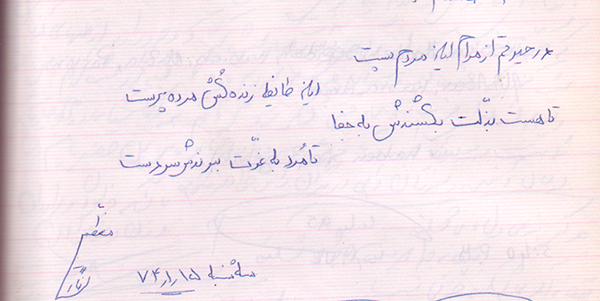 در حیرتم از مرام این مردم پست
این طایفه زنده‌کش مرده پرست
تا هست بذلت بکشندش به جفا
تا مرد به عزت ببرندش سر دست
سه شنبه